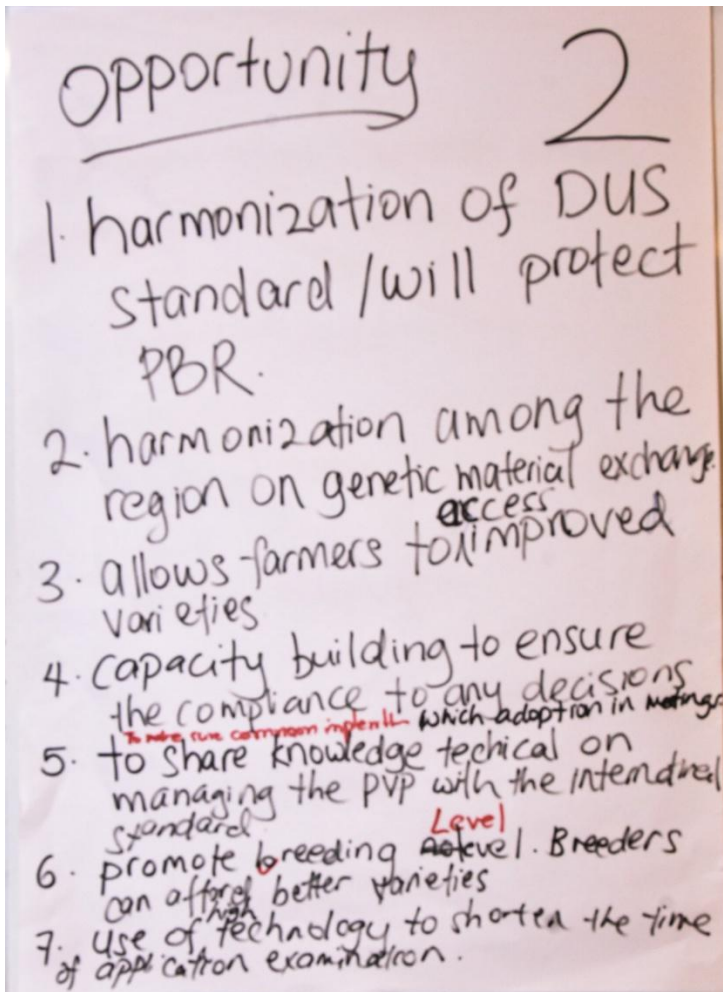 opportunity 2
1. harmonization of DUS
standard / will protect
PBR.
2. harmonization among the
region on genetic material exchange
3. allows farmers to access improved
varieties
4. capacity building to ensure
the compliance to any decisions
To make sure common which adoption in meetings
5. to share knowledge techical on
managing the PVP with the
standard
6. promote breeding Level. Breeders
can afford better varieties
7. use of high technology to shorten the time
of application examination.